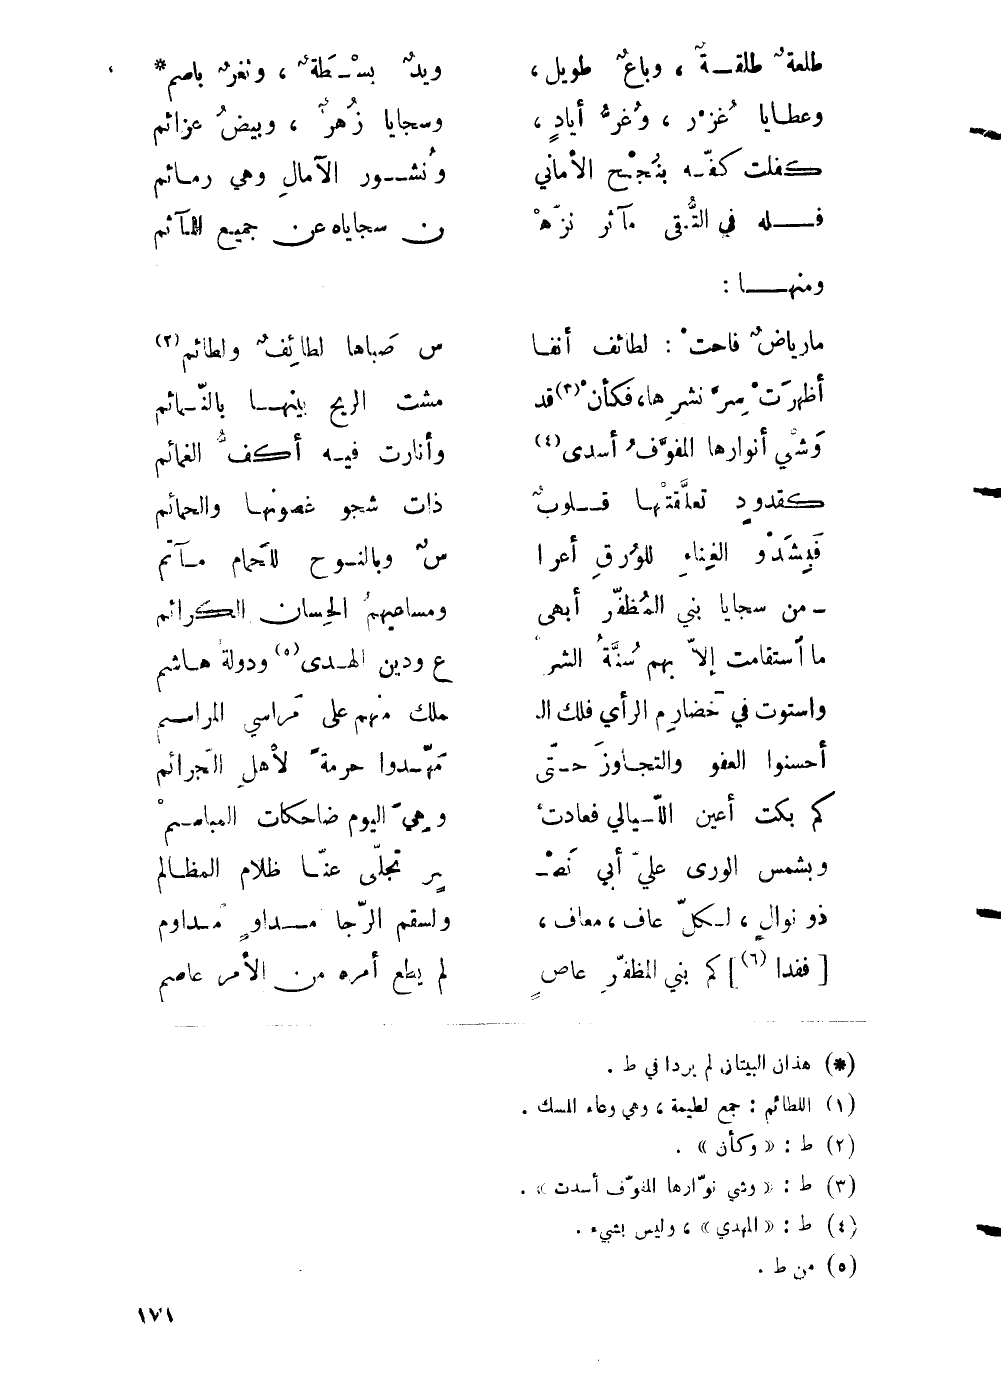 طلعةٌ طلقــةٌ ، وباعٌ طويل ، ويدٌ بسْـطَةٌ ، وثغرٌ باصم*
وعطايا غُزْر ، وغُرُّ أيادٍ ، وسجايا زُهرٌ ، وبيضُ عزائم
كفلت كفّـه بنُجْح الأماني ونُشــور الآمالِ وهي رمائم
فــله في التُّقى مآثر نزّهْـ ـن سجاياه عن جميع المآثم
ومنهــا :
مارياضٌ فاحتْ : لطائف أنفا س صَباها لطائِفٌ ولطائم(٢)
أظهرَتْ سِرَّ نشرِها، فكأنْ(٣) قد مشت الريح بينهــا بالنَّـمائم
وَشْي أنوارها المفوَّفُ أسدى(٤) وأنارت فيـه أكفُّ الغمائم
كقدودٍ تعلَّقتْها قــلوبٌ ذات شجو غصونهـا والحمائم
فَبِشَدْو الغِناءِ للوُرقِ أعرا سٌ وبالنـوح للحَمام مـآتم
ـ من سجايا بني المُظفّر أبهى ومساعيهمُ الحِسان الكرائم
ما ٱستقامت إلاّ بهم سُنَّةُ الشر ع ودين الهـدى(٥) ودولة هـاشم
واستوت في خَضارِم الرأي فلك الـ ملك منهم على مَراسي المراسـم
أحسنوا العفو والتجـاوزَ حـتّى مَهّـدوا حرمةً لأهلِ الجَرائم
كم بكت أعين اللّـيالي فعادتْ وهِيَ اليوم ضاحكات المباسـمْ
وبشمس الورى عليّ أبي نَصْـ ـرٍ تجلّى عنّـا ظلام المظـالم
ذو نوالٍ ، لـكلّ عاف ، معاف ، ولسقم الرّجا مــداوٍ مُـداوم
[ ففدا (٦) ] كم بني المظفّرِ عاصٍ لم يطع أمره من الأمر عاصم
(*) هذان البيتان لم يردا في ط .
(١) اللطائم : جمع لطيمة ، وهي وعاء المسك .
(٢) ط : « وكأن » .
(٣) ط : « وشي نوّارها المفوّف أسدت » .
(٤) ط : « المهدي » ، وليس بشيء .
(٥) من ط .
١٧١